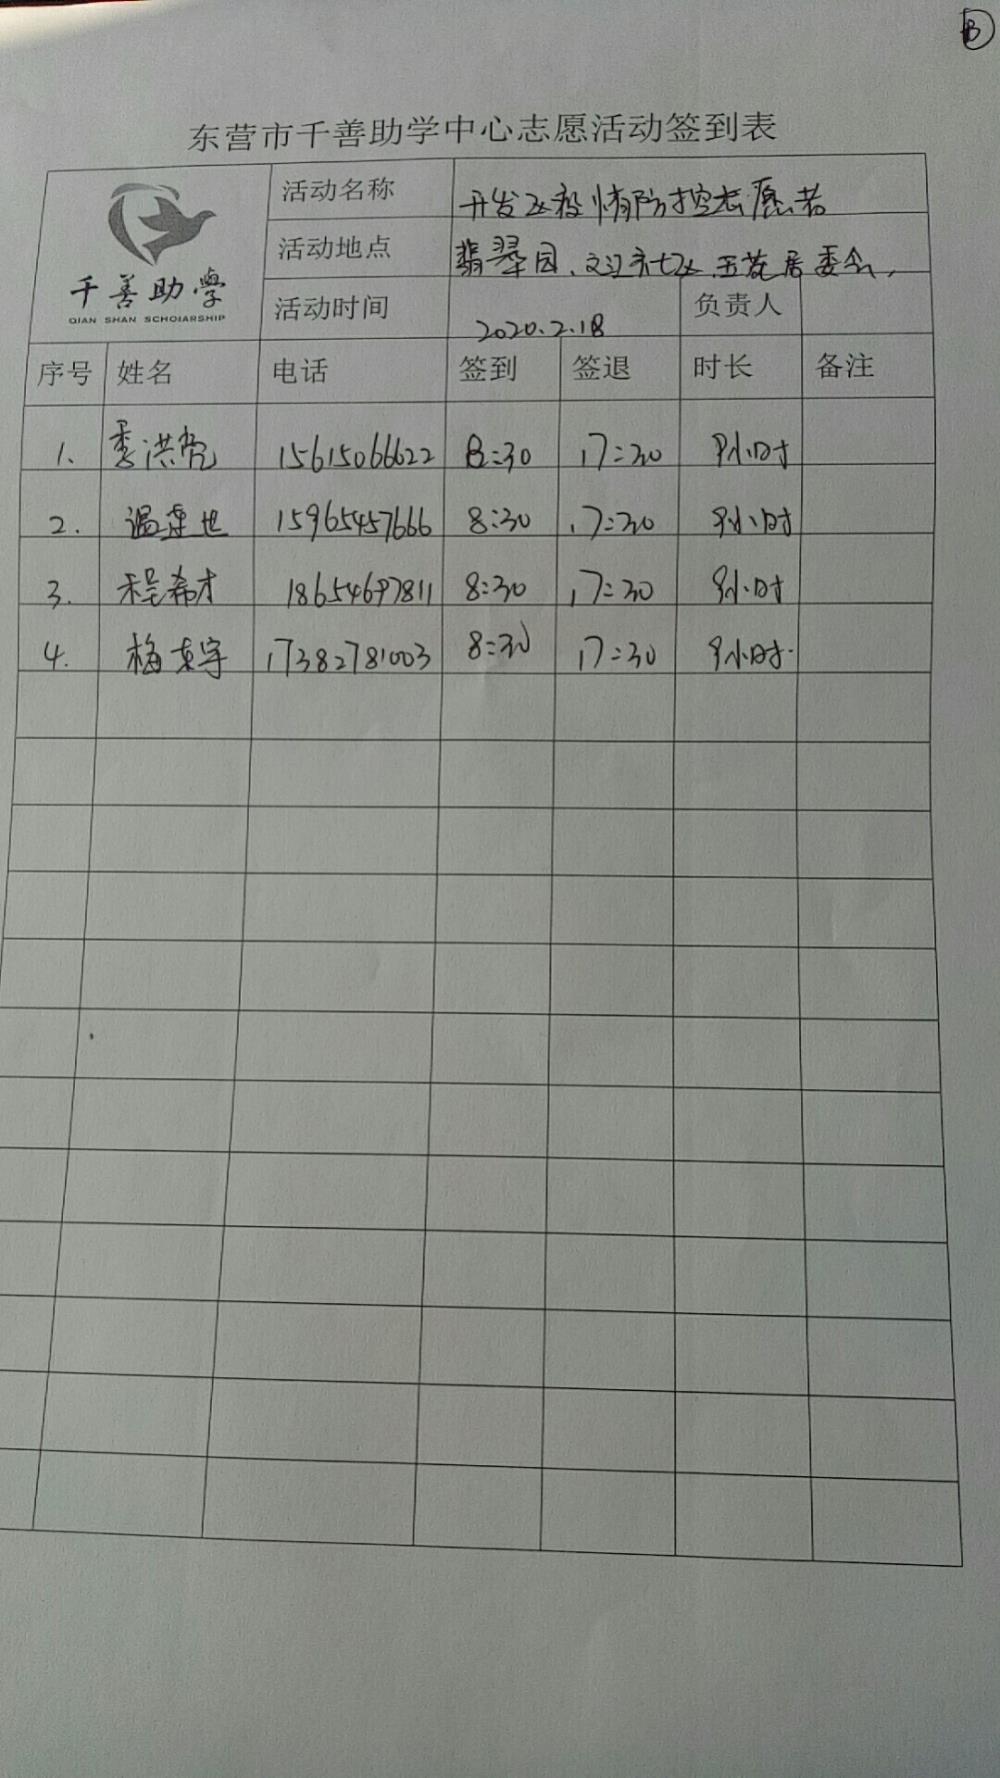 B
东营市千善助学中心志愿活动签到表
千善助學
QIAN SHAN SCHOIARSHIP
活动名称 开发区疫情防控志愿者
活动地点 翡翠园、文汇社区 居委会
活动时间 2020.2.18 负责人
序号 姓名 电话 签到 签退 时长 备注
1. 季洪亮 15615066622 8:30 17:30 9小时
2. 温 世 15965457666 8:30 17:30 9小时
3. 程希才 18654697811 8:30 17:30 9小时
4. 梅 宇 17382781003 8:30 17:30 9小时